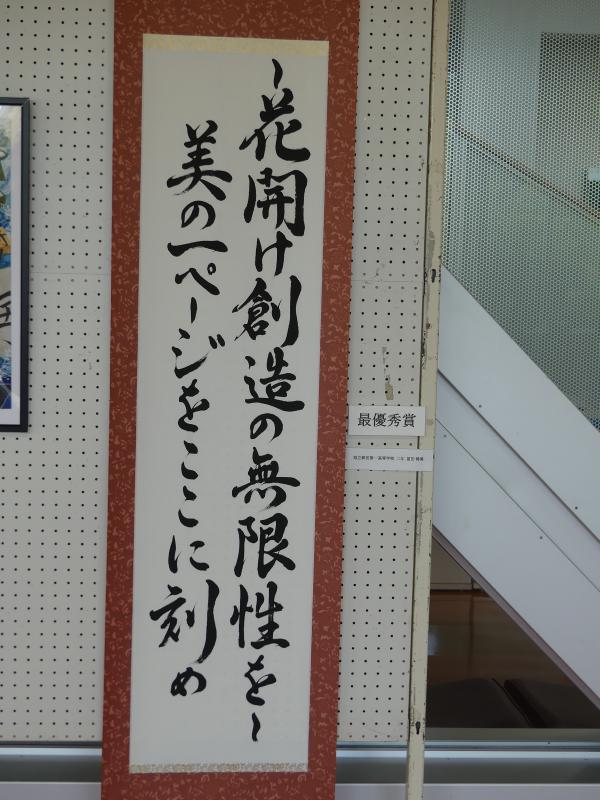 ~花開け創造の無限性を~
美の一ページをここに刻め
最優秀賞